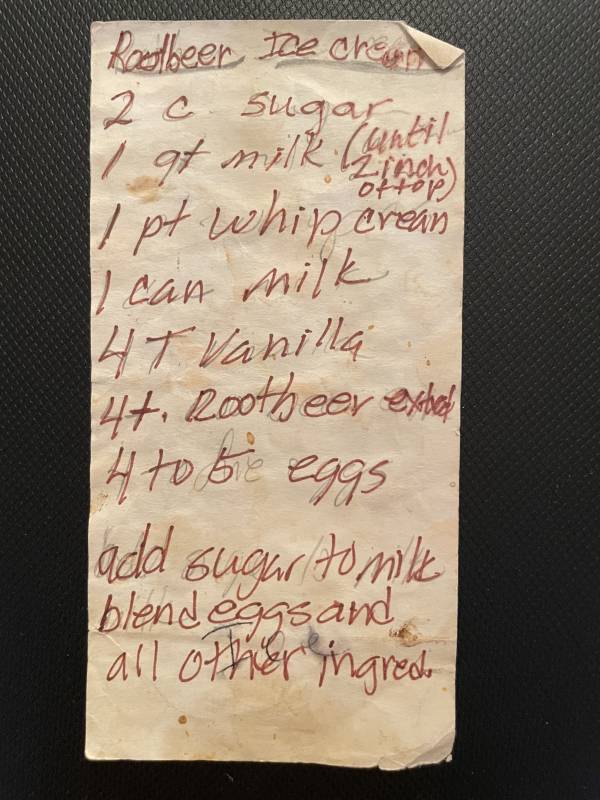 Rootbeer Ice cream
2 c sugar
1 qt milk (until
2 inch
of top)
1 pt whip crean
1 can milk
4 T Vanilla
4 t. Rootbeer extract
4 to 5 eggs
add sugar to milk
blend eggs and
all other ingred.